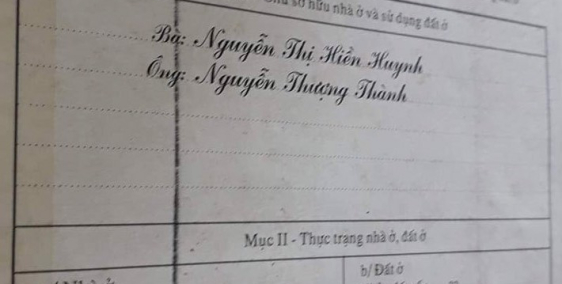 sở hữu nhà ở và sử dụng đất ở
Bà: Nguyễn Thị Hiền Huynh
Ông: Nguyễn Thượng Thành
Mục II - Thực trạng nhà ở, đất ở
b/ Đất ở